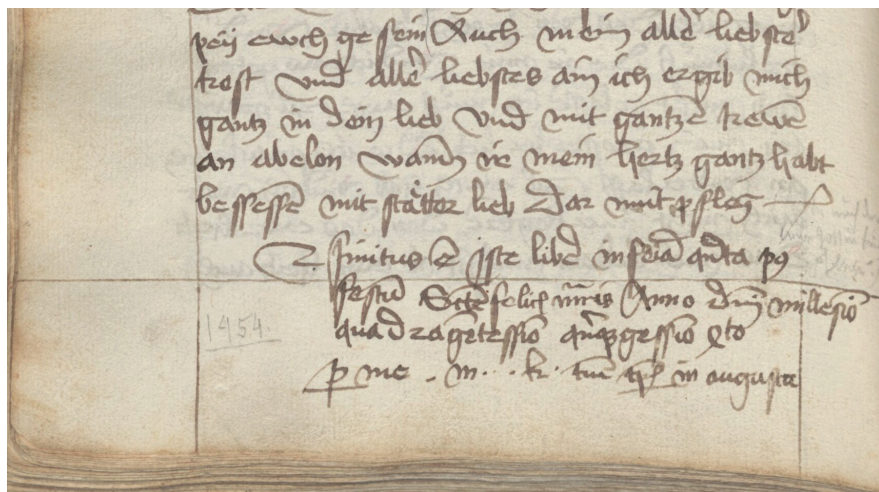 peÿ ewch gesein Auch mein alle͛ liebste͛
trost vnd alle͛ liebstes ain ich ergib mich
gantz in dein lieb vnd mit gantze͛ trewē
an abelon wann ir mein hertz gantz habt
besessē mit stätter lieb Dar mit pfleg
Finitus ē iste libe͛ in feria qn̄ta po
festū Sctē felicis mr̄is Anno dn̄i millesiō
quadragētessiō qn̄qgessiō qto
p me . m . . . k . tūc tp̄ in augusta
1454.